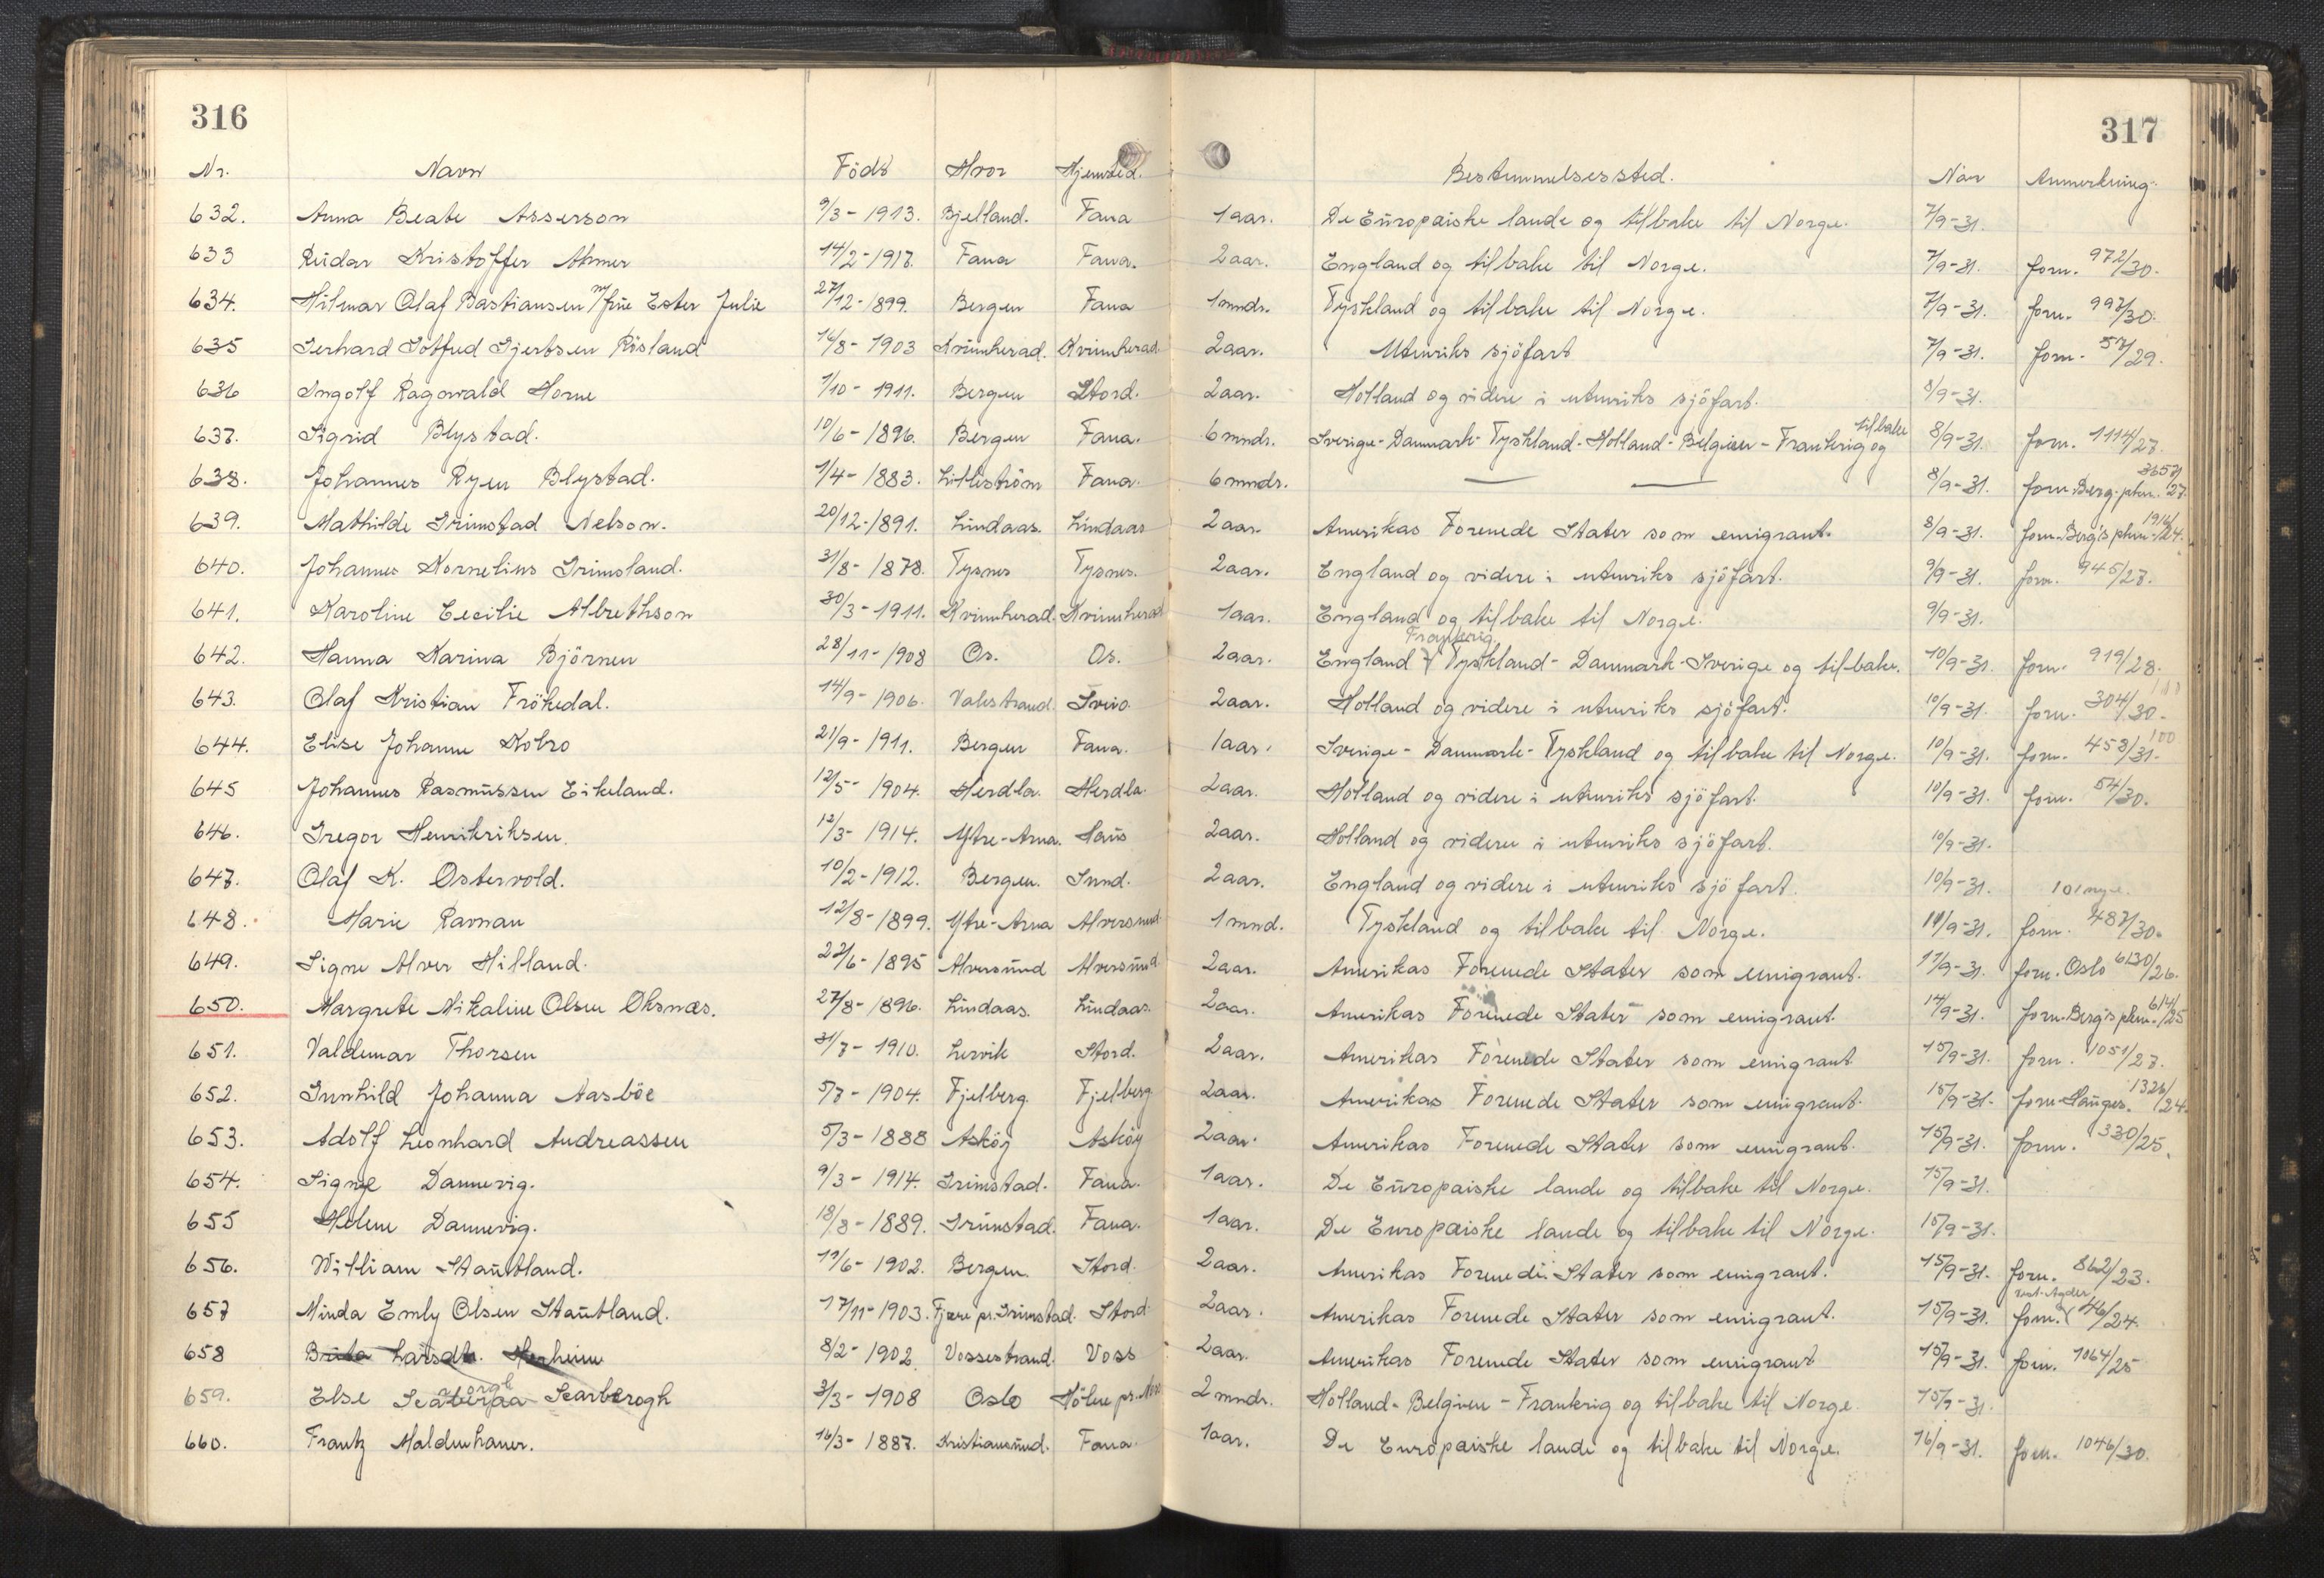 316
317
Nr. Navn Födt Hvor Hjemsted. Bestemmelsessted. Når Anmerkning.
632. Anna Beate Asserson 9/3-1913. Bjelland. Fana 1 aar. De Europæiske lande og tilbake til Norge. 7/9-31.
633 Reidar Kristoffer Ahmer 14/2-1917. Fana Fana. 2 aar. England og tilbake til Norge. 7/9-31. forn. 972/30.
634. Hilmar Olaf Bastiansen m/frue Ester Julie 27/12-1899. Bergen Fana 1 mndr. Tyskland og tilbake til Norge. 7/9-31. forn. 997/30.
635 Gerhard Gotfred Gjertsen Røsland 16/8-1903 Kvinnherad. Kvinnherad. 2 aar. Utenriks sjöfart 7/9-31. forn. 57/29.
636 Ingolf Ragnvald Horne 7/10-1911. Bergen Stord. 2 aar. Holland og videre i utenriks sjöfart. 8/9-31.
637. Sigrid Blystad. 10/6-1896. Bergen Fana. 6 mndr. Sverige-Danmark-Tyskland-Holland-Belgien-Frankrig og tilbake 8/9-31. forn. 1114/27.
638. Johannes Ryen Blystad. 1/4-1883. Lilleström Fana. 6 mndr. — — 8/9-31. forn. Berg. pkm. 3657/27.
639. Mathilde Grimstad Nelson. 20/12-1891. Lindaas. Lindaas 2 aar. Amerikas Forenede Stater som emigrant. 8/9-31. forn. Berg's pkm. 1916/24.
640. Johannes Kornelius Grimsland. 31/8-1878. Tysnes Tysnes. 2 aar. England og videre i utenriks sjöfart. 9/9-31. forn. 945/27.
641. Karoline Cecilie Albrethson 30/3-1911. Kvinnherad. Kvinnherad 1 aar. England og tilbake til Norge. 9/9-31.
642. Hanna Karina Björnen 28/11-1908 Os. Os. 2 aar. England - Frankrig. Tyskland-Danmark-Sverige og tilbake. 10/9-31. forn. 919/28.
643. Olaf Kristian Frökedal. 14/9-1906. Valestrand. Sveio. 2 aar. Holland og videre i utenriks sjöfart. 10/9-31. forn. 304/30.
644. Elise Johanne Kobro 21/9-1911. Bergen Fana. 1 aar. Sverige-Danmark-Tyskland og tilbake til Norge. 10/9-31. forn. 458/31. 100
645 Johannes Rasmussen Eikeland. 12/5-1904. Herdla. Herdla. 2 aar. Holland og videre i utenriks sjöfart. 10/9-31. forn. 54/30.
646. Gregor Henrikriksen. 12/3-1914. Ytre-Arna. Haus 2 aar. Holland og videre i utenriks sjöfart. 10/9-31.
647. Olaf K. Ostervold. 10/2-1912. Bergen. Sund. 2 aar. England og videre i utenriks sjö fart. 10/9-31.
648. Marie Ravnan 12/8-1899. Ytre-Arna Alversund 1 mnd. Tyskland og tilbake til Norge. 11/9-31. forn. 487/30.
649. Signe Alver Hilland. 22/6-1895 Alversund Alversund 2 aar. Amerikas Forenede Stater som emigrant. 11/9-31. forn. Oslo 6130/26.
650. Margrete Nikaline Olsen Oksnæs. 27/8-1896. Lindaas. Lindaas. 2 aar. Amerikas Forenede Stater som emigrant. 14/9-31. forn. Berg's pkm. 614/25
651. Valdemar Thorsen 31/7-1910. Lervik Stord. 2 aar. Amerikas Forenede Stater som emigrant 15/9-31. forn. 1051/27.
652. Gunhild Johanna Aasböe 5/7-1904. Fjelberg Fjelberg 2 aar. Amerikas Forenede Stater som emigrant. 15/9-31. forn. Hauges. 1326/24.
653. Adolf Leonhard Andreassen 5/3-1888 Asköy Asköy 2 aar. Amerikas Forenede Stater som emigrant. 15/9-31. forn. 330/25.
654. Signe Dannevig. 9/3-1914. Grimstad. Fana. 1 aar. De Europæiske lande og tilbake til Norge. 15/9-31.
655 Helene Dannevig. 18/8-1889. Grimstad. Fana. 1 aar. De Europæiske lande og tilbake til Norge. 15/9-31.
656. William Stautland. 19/6-1902. Bergen. Stord. 2 aar. Amerikas Forenede Stater som emigrant. 15/9-31. forn. 862/23.
657 Minda Emly Olsen Stautland. 17/11-1903. Fjære pr. Grimstad. Stord. 2 aar. Amerikas Forenede Stater som emigrant. 15/9-31. forn. Vest-Agder 46/24.
658 Brita Larsdtr. Herheim 8/2-1902 Vossestrand. Voss 2 aar. Amerikas Forenede Stater som emigrant 15/9-31. forn. 1064/25
659. Else Scarborogh 3/3-1908 Oslo Hölen pr. Moss 2 mndr. Holland-Belgien-Frankrig og tilbake til Norge. 15/9-31.
660. Frantz Maldenhauer. 16/3-1887. Kristiansund. Fana. 1 aar. De Europæiske lande og tilbake til Norge. 16/9-31. forn. 1046/30.